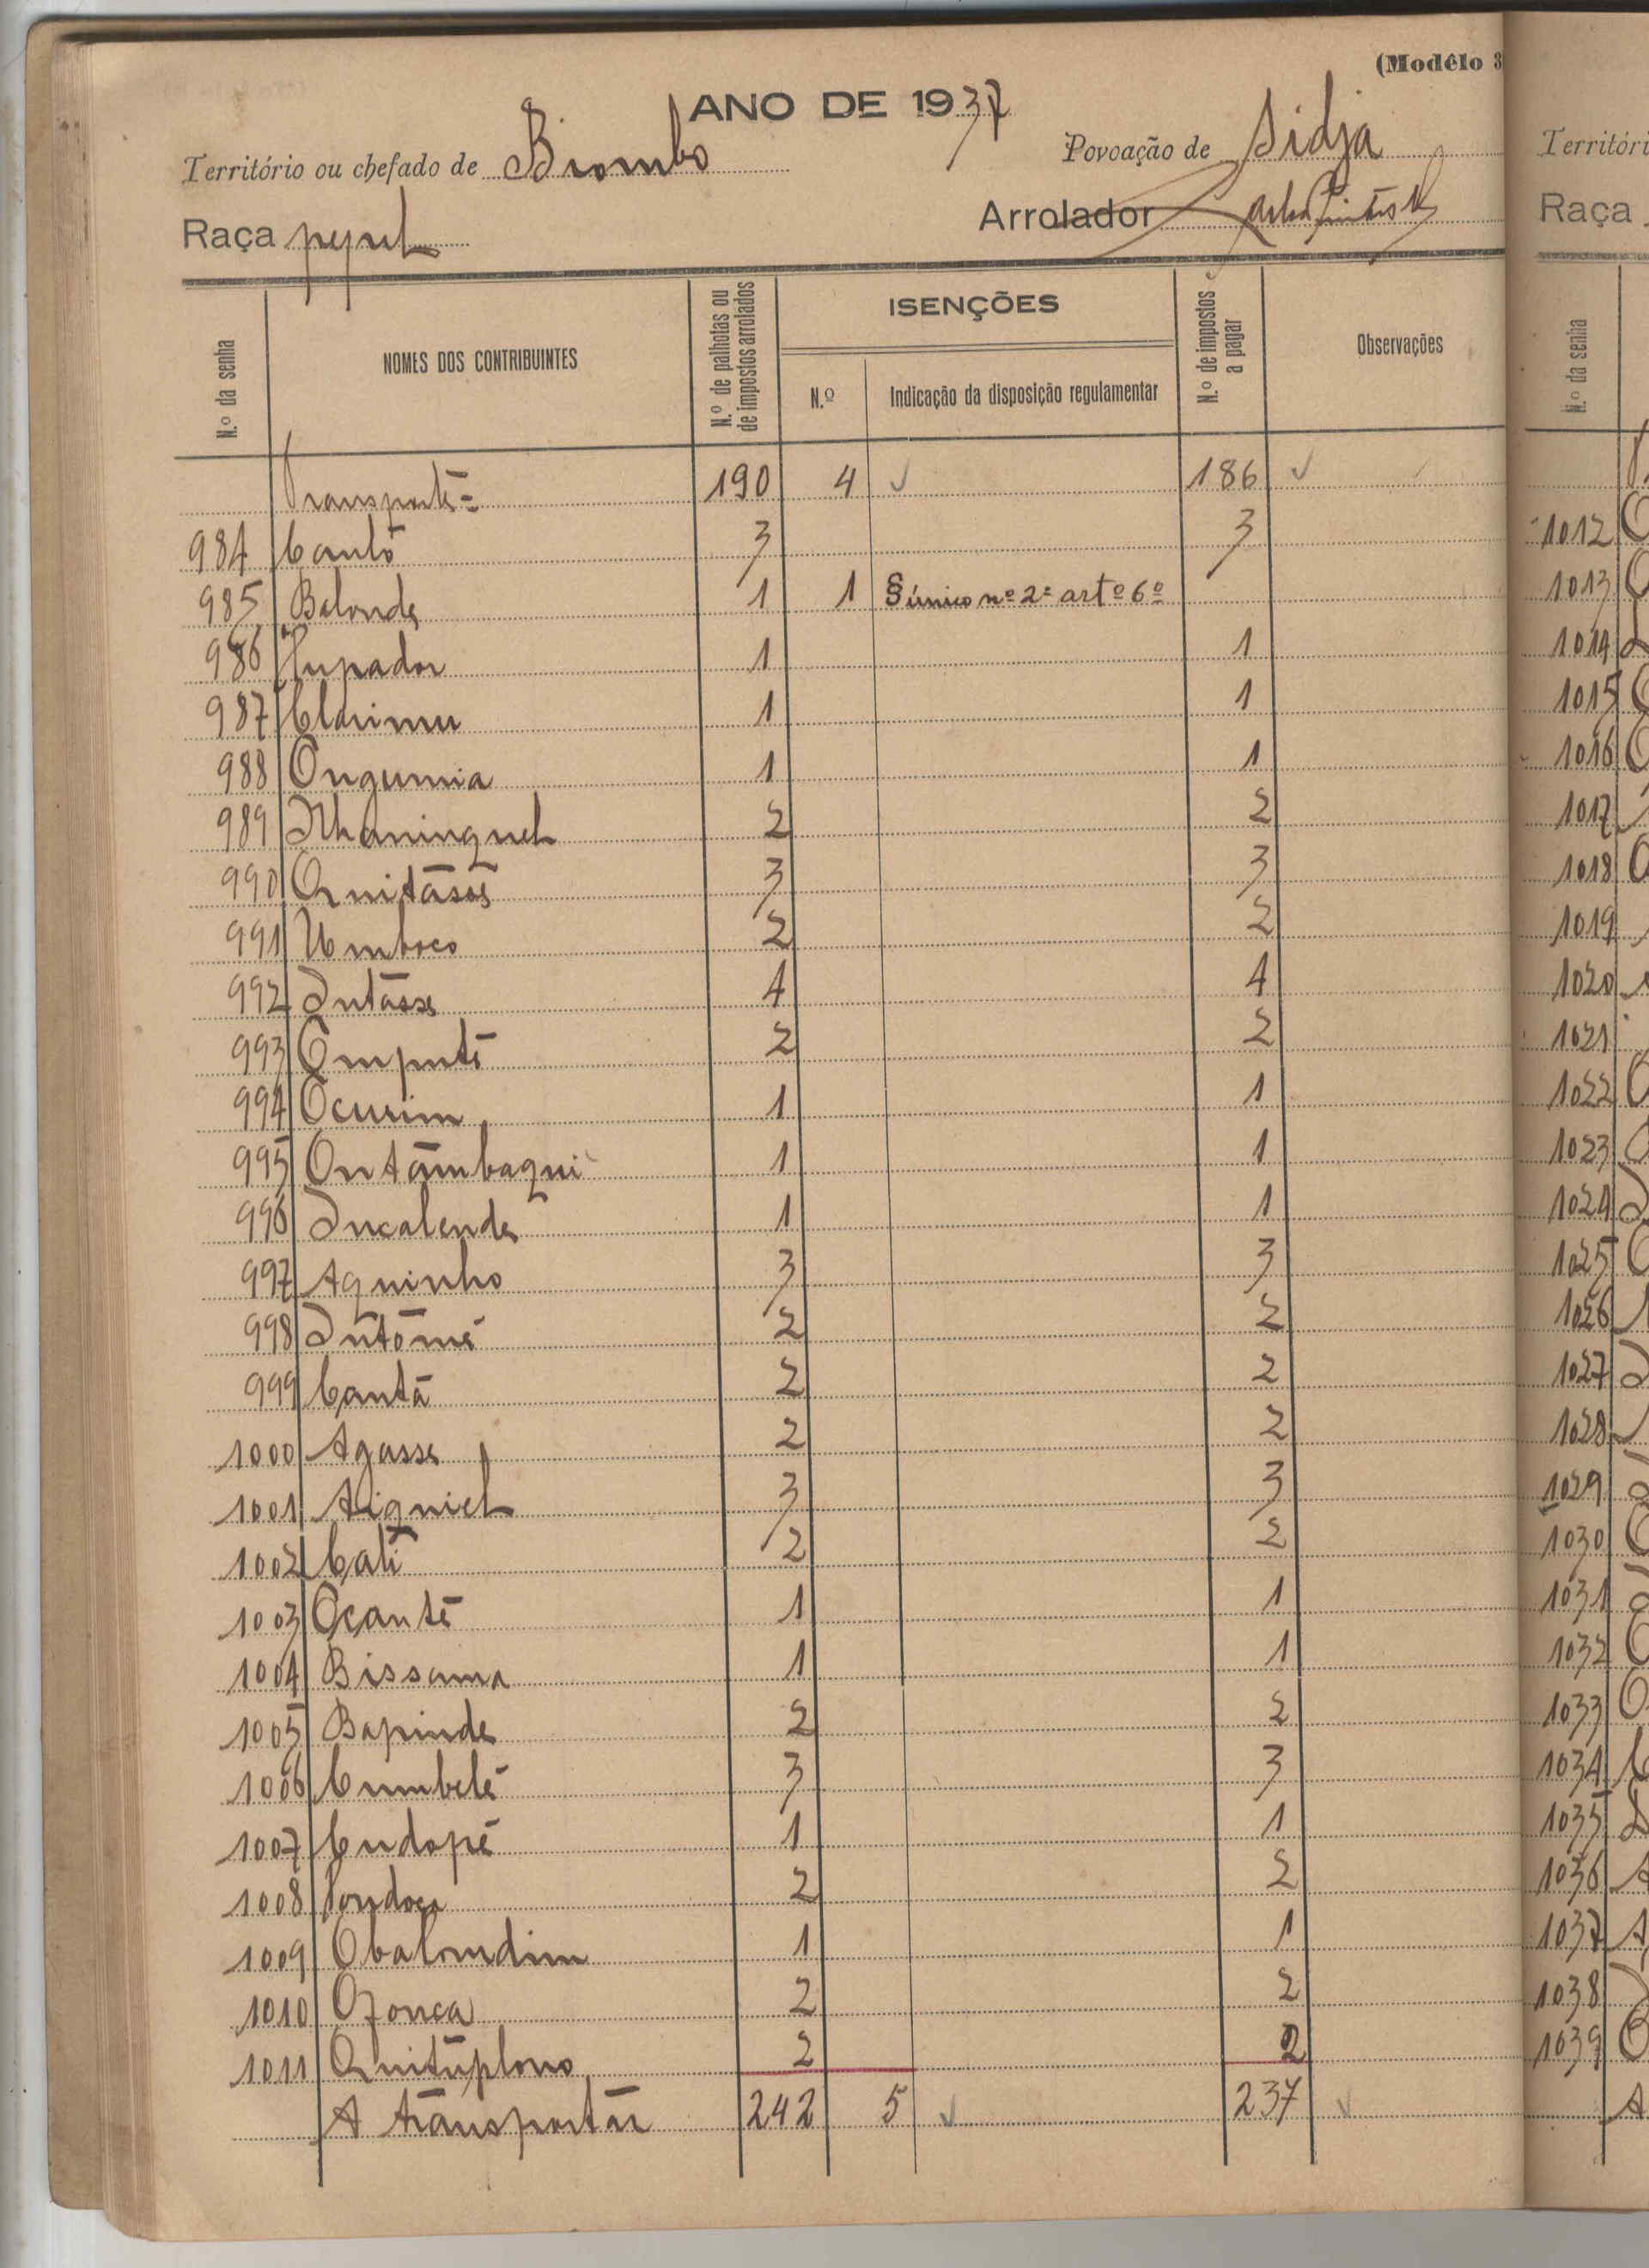 (Modêlo 3
ANO DE 1937
Território ou chefado de Biombo
Povoação de Sidja
Raça pepel
Arrolador
N.º da senha
NOMES DOS CONTRIBUINTES
N.º de palhotas ou de impostos arrolados
ISENÇÕES
N.º
Indicação da disposição regulamentar
N.º de impostos a pagar
Observações
Transporte = 190 4 186
984 Cantó 3 3
985 Balonde 1 1 § único nº 2º artº 6º
986 Jupador 1 1
987 Clarimu 1 1
988 Ongumia 1 1
989 Nhaninquel 2 2
990 Quitasse 3 3
991 Umboco 2 2
992 Intasse 4 4
993 Emputé 2 2
994 Ocurim 1 1
995 Ontambaqui 1 1
996 Incalende 1 1
997 Aquinho 3 3
998 Intomé 2 2
999 Cantá 2 2
1000 Agasse 2 2
1001 Aiquiel 3 3
1002 Cati 2 2
1003 Ocanté 1 1
1004 Bissama 1 1
1005 Bapinde 2 2
1006 Cumbelé 3 3
1007 Cudopé 1 1
1008 2 2
1009 Obalomdim 1 1
1010 Ofonca 2 2
1011 Quituplono 2 2
A transportar 242 5 237
Territóri
Raça
N.º da senha
1012
1013
1014
1015
1016
1017
1018
1019
1020
1021
1022
1023
1024
1025
1026
1027
1028
1029
1030
1031
1032
1033
1034
1035
1036
1037
1038
1039
A